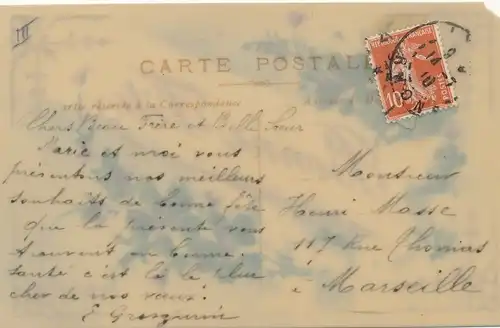 III
CARTE POSTALE
Partie réservée à la Correspondance
Chers Beau Frère et Belle Sœur
Marie et moi vous
présentons nos meilleurs
souhaits de bonne fête
que la présente vous
trouvent en bonne
santé c'est là le plus
cher de nos vœux.
E
Monsieur
Henri Masse
117 Rue Thomas
à
Marseille
10
POSTES